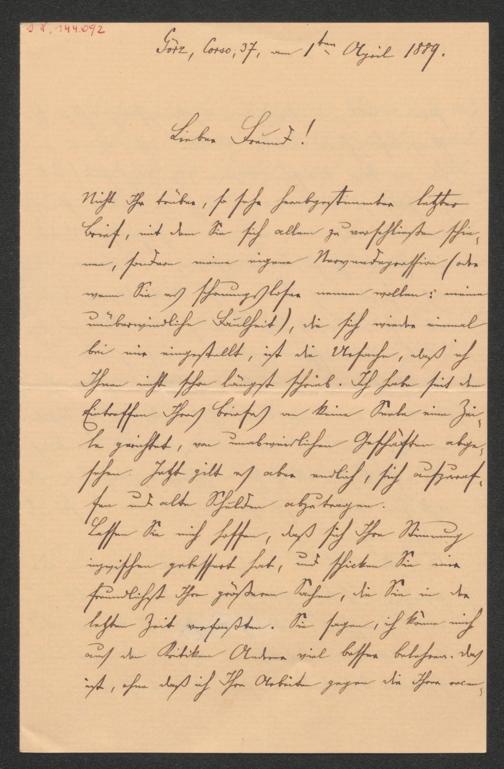 I.N. 144.092
Görz, Corso, 37, am 1ten April 1889.
Lieber Freund!
Nicht Ihr trüber, so sehr herabgestimmter letzter
Brief, mit dem Sie sich allem zu verschließen schie-
nen, sondern meine eigene Nervendepression (oder
wenn Sie es schonungsloser nennen wollen: meine
unüberwindliche Faulheit), die sich wieder einmal
bei mir eingestellt, ist die Ursache, daß ich
Ihnen nicht schon längst schrieb. Ich habe seit dem
Eintreffen Ihres Briefes an keine Seele eine Zei-
le gerichtet, von unabweislichen Geschäften abge-
sehen. Jetzt gilt es aber endlich, sich aufzuraf-
fen und alte Schulden abzutragen.
Lassen Sie mich hoffen, daß sich Ihre Stimmung
inzwischen gebessert hat, und schicken Sie mir
freundlichst Ihre größeren Sachen, die Sie in der
letzten Zeit verfaßten. Sie sagen, ich könne mich
aus den Kritiken Anderer viel besser belehren. Das
ist, ohne daß ich Ihre Arbeiten gegen die Ihrer